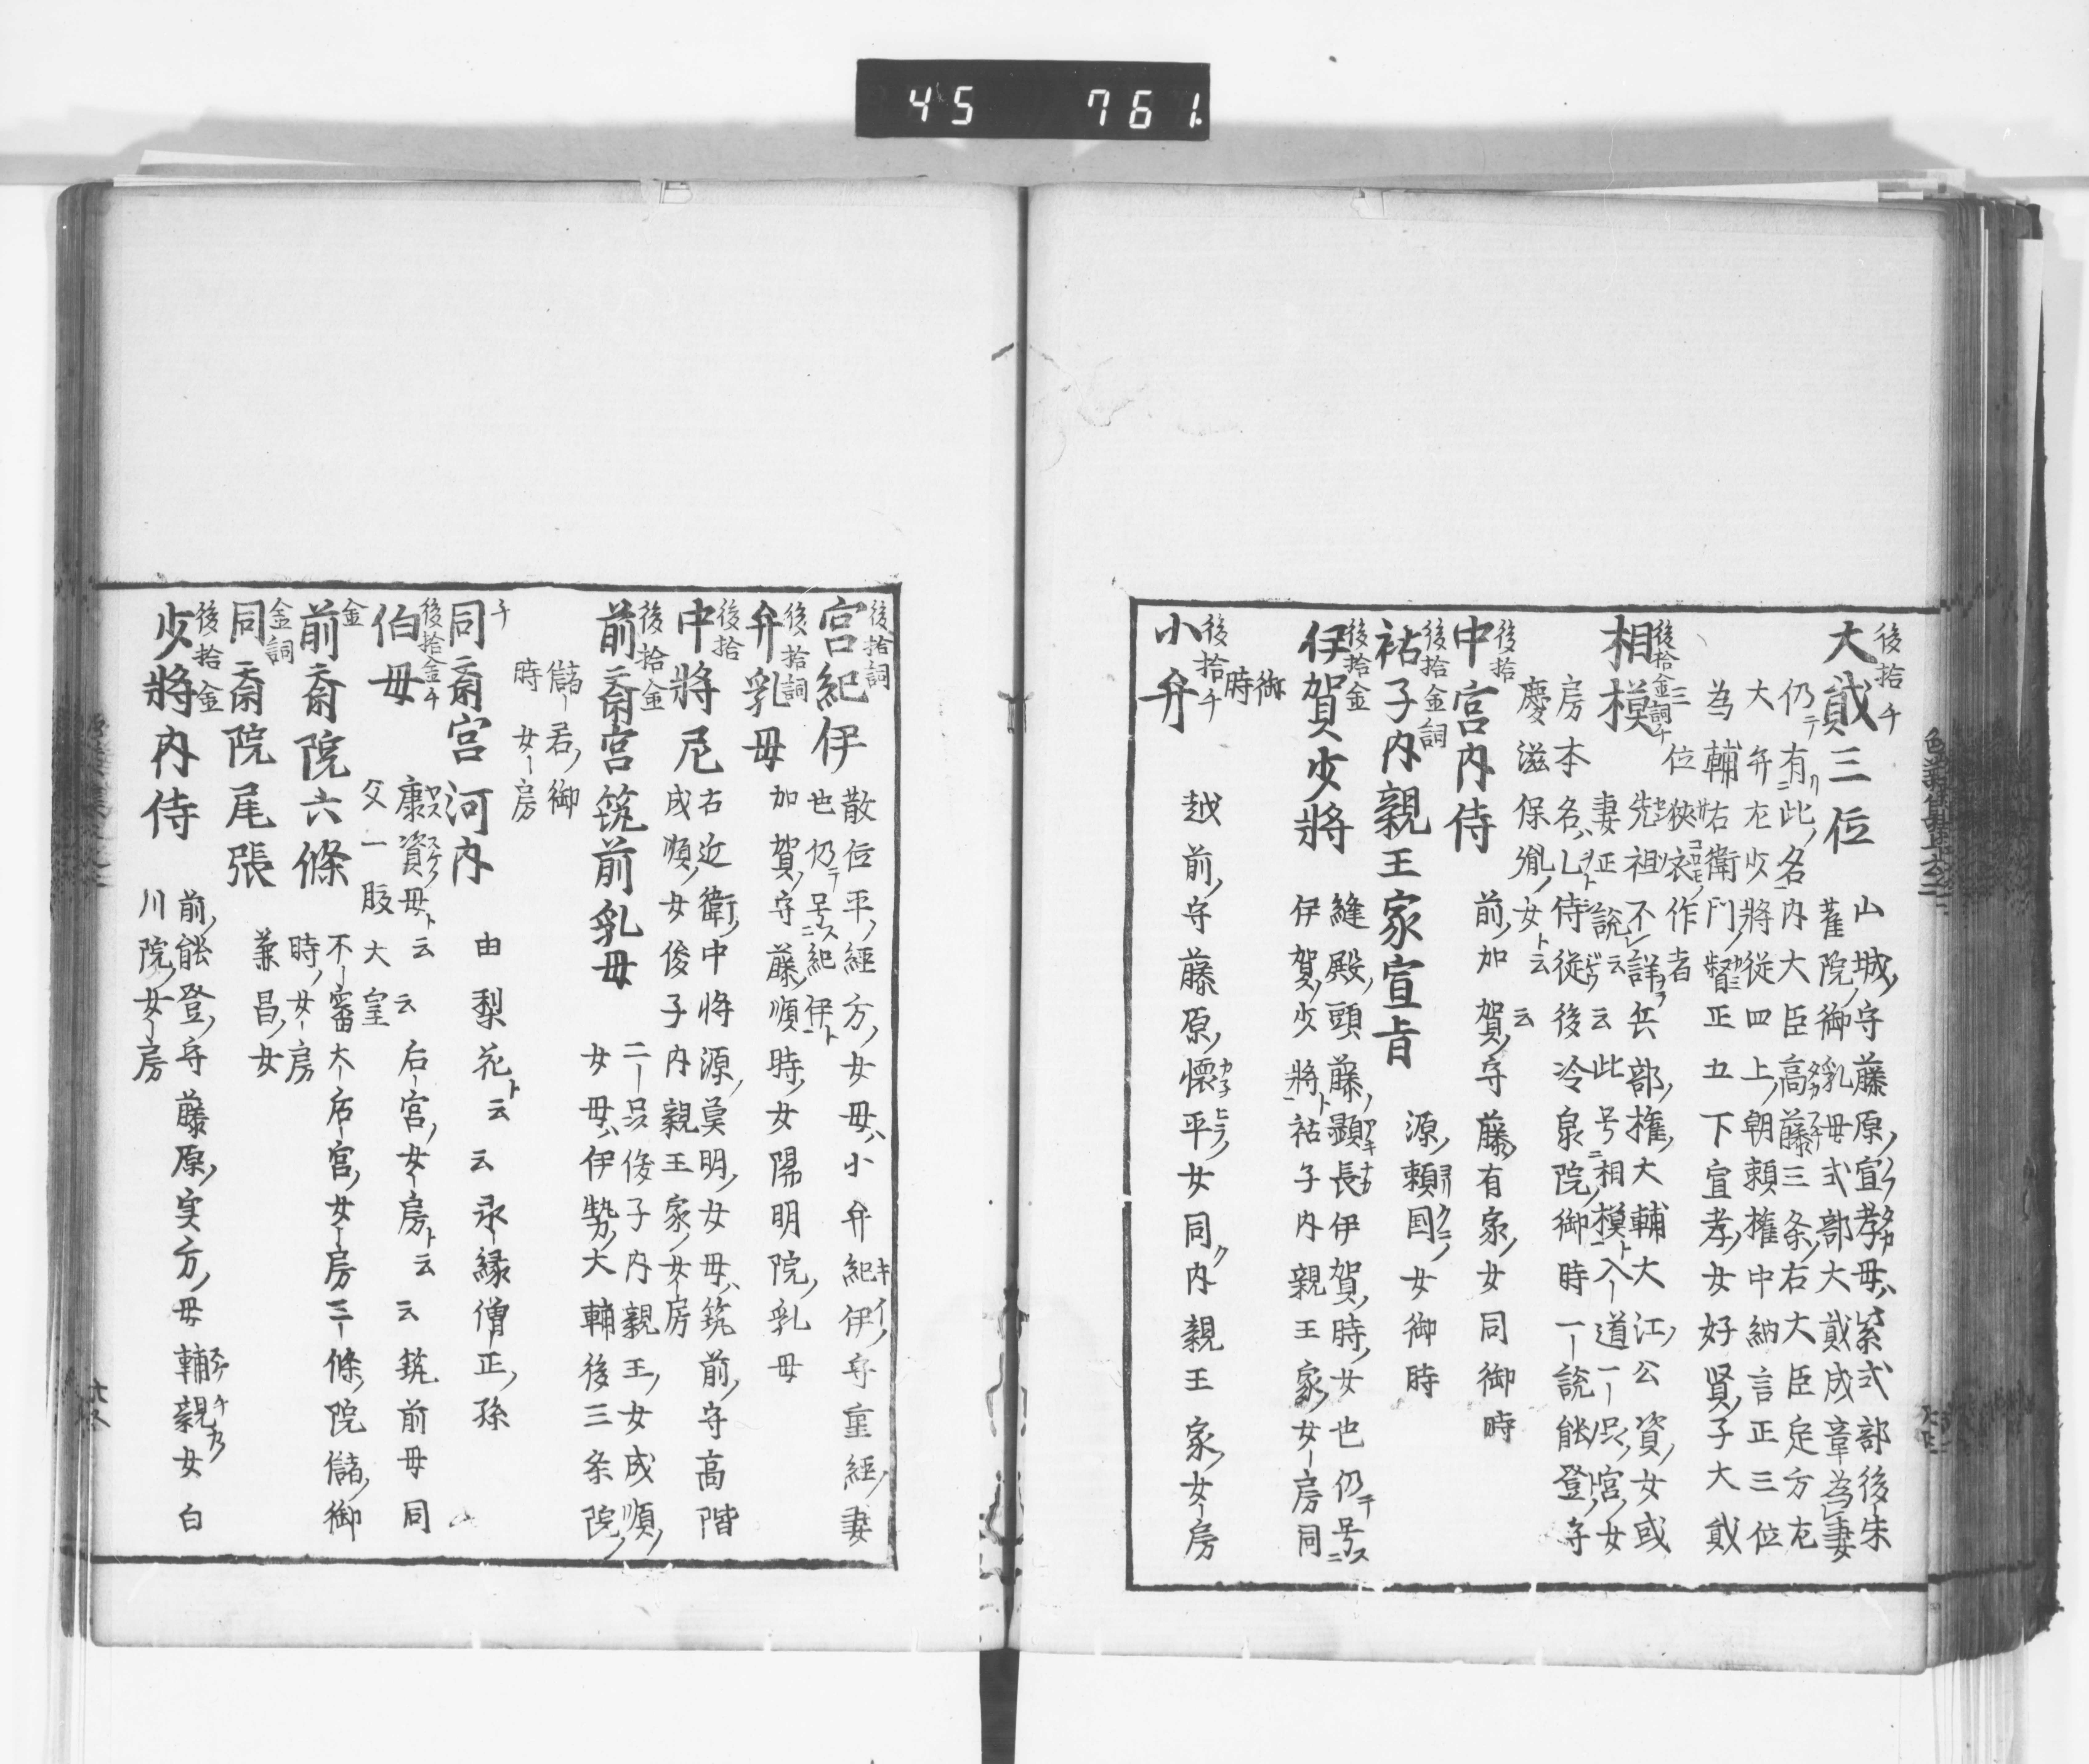 45 761
後拾 千
大貮三位
山城守藤原宣孝母ハ紫式部後朱
雀院御乳母式部大貮成章為妻
仍テ有此名 内大臣高藤三条右大臣定方左
大弁左少将従四上朝頼権中納言正三位
為輔右衛門督正五下宣孝女好賢子大貮
三位狭衣作者
後拾金詞千
相模
先祖不詳兵部権大輔大江公資女或
妻正説云云此号相模ト入道一品宮女
房本名ハ乙侍従後冷泉院御時一説能登守
慶滋保胤女ト云云
後拾
中宮内侍
前加賀守藤有家女同御時
後拾金詞
祐子内親王家宣旨
源頼国女御時
後拾金
伊賀少將
縫殿頭藤顕長伊賀時女也仍テ号ス
伊賀少將ト祐子内親王家女房同
御
時
後拾千
小弁
越前守藤原懐平女同ク内親王家女房
後拾詞
宮紀伊
散位平経方女母ハ小弁紀伊守重経妻
也仍テ号ス紀伊ト
後拾詞
弁乳母
加賀守藤順時女陽明院乳母
後拾
中將尼
右近衛中将源莫明女母ハ筑前守高階
成順女俊子内親王家女房
後拾金
前斎宮筑前乳母
二品俊子内親王女成順
女母ハ伊勢大輔後三条院
儲君御
時女房
千
同斎宮河内
由梨花ト云云永縁僧正孫
後拾金千
伯母
康資母ト云云后宮女房ト云云筑前母同
父一腹大皇
金
前斎院六條
不審大后宮女房三條院儲御
時女房
金詞
同斎院尾張
兼昌女
後拾金
少將内侍
前能登守藤原実方母輔親女白
川院女房